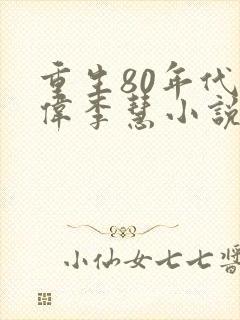 重生80年代
偉李慧小說
小仙女七七醬